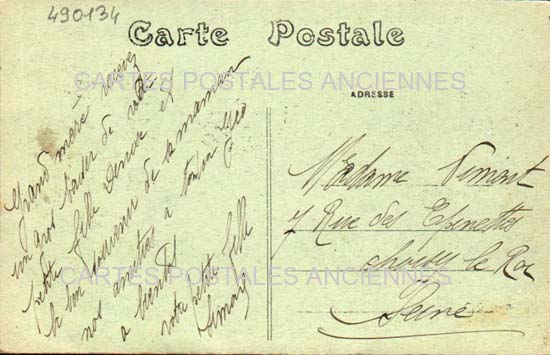 490134
Carte Postale
CARTES POSTALES ANCIENNES
ADRESSE
Grand mère recevez
un gros baiser de votre
petite fille Denise et
le bon souvenir de la maman
nos amitiés a tonton Léo
a bientot
votre petite fille
Simone
Madame Vimont
7 Rue des Epinettes
choisy le Roi
Seine
CARTES POSTALES ANCIENNES